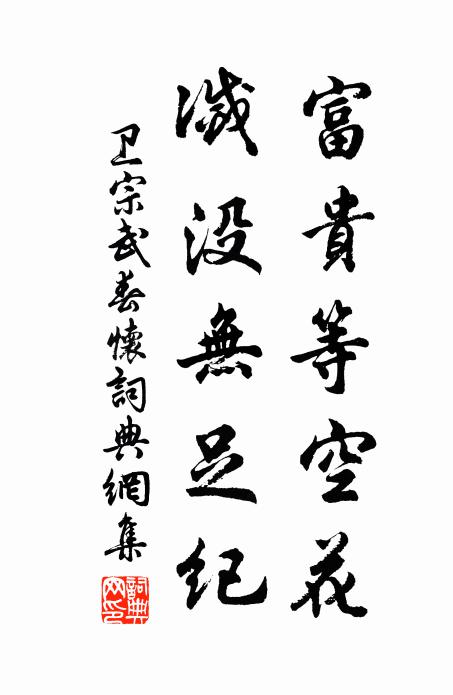 富貴等空花
滅没無足紀
卫宗武春懷詞典網集
詞典网印